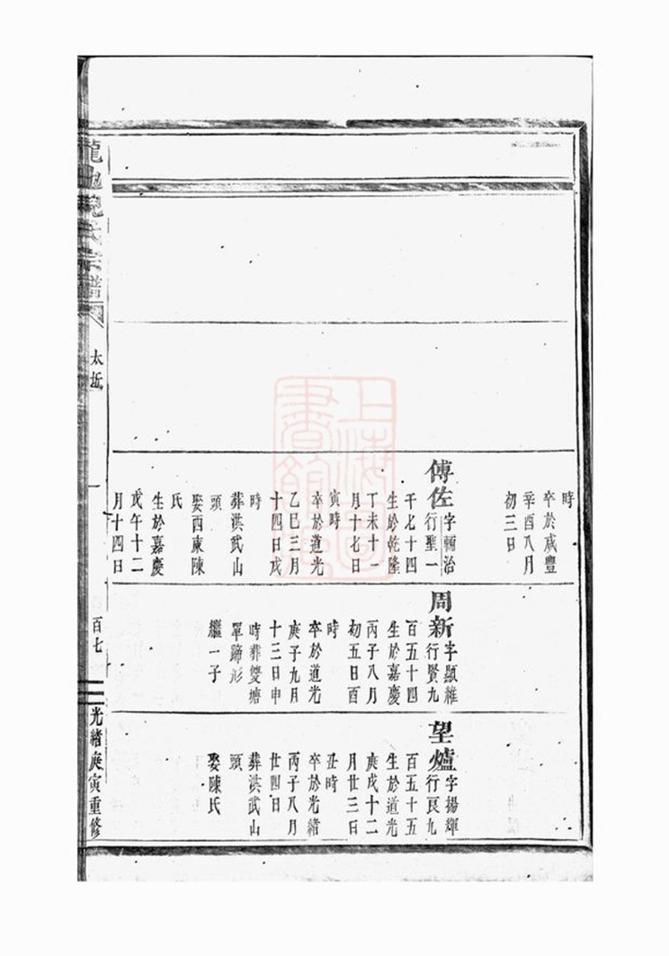 時
卒於咸豐
辛酉八月
初三日
傅佐
字輔治
行聖一
千七十四
生於乾隆
丁未十一
月十七日
寅時
卒於道光
乙巳三月
十四日戌
時
葬洪武山
頭
娶西東陳
氏
生於嘉慶
戊午十二
月十四日
周新
字顯維
行賢九
百五十四
生於嘉慶
丙子八月
初五日酉
時
卒於道光
庚子九月
十三日申
時葬雙塘
單蹄形
繼一子
望爐
字揚輝
行良九
百五十五
生於道光
庚戌十二
月廿三日
丑時
卒於光緒
丙子八月
廿四日
葬洪武山
頭
娶陳氏
氏宗譜
太坻
百七
光緒庚寅重修
上海圖書館藏